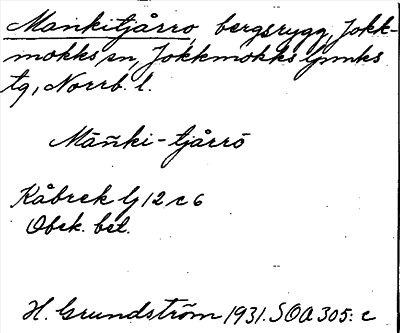 Mankitjårro, bergsrygg, Jokk-
mokks sn, Jokkmokks lpmks
tg, Norrb. l.
Māñki-tjårrō
Kåbrek lj 12 c 6
Obek. bel.
H. Grundström 1931. SOA 305: c